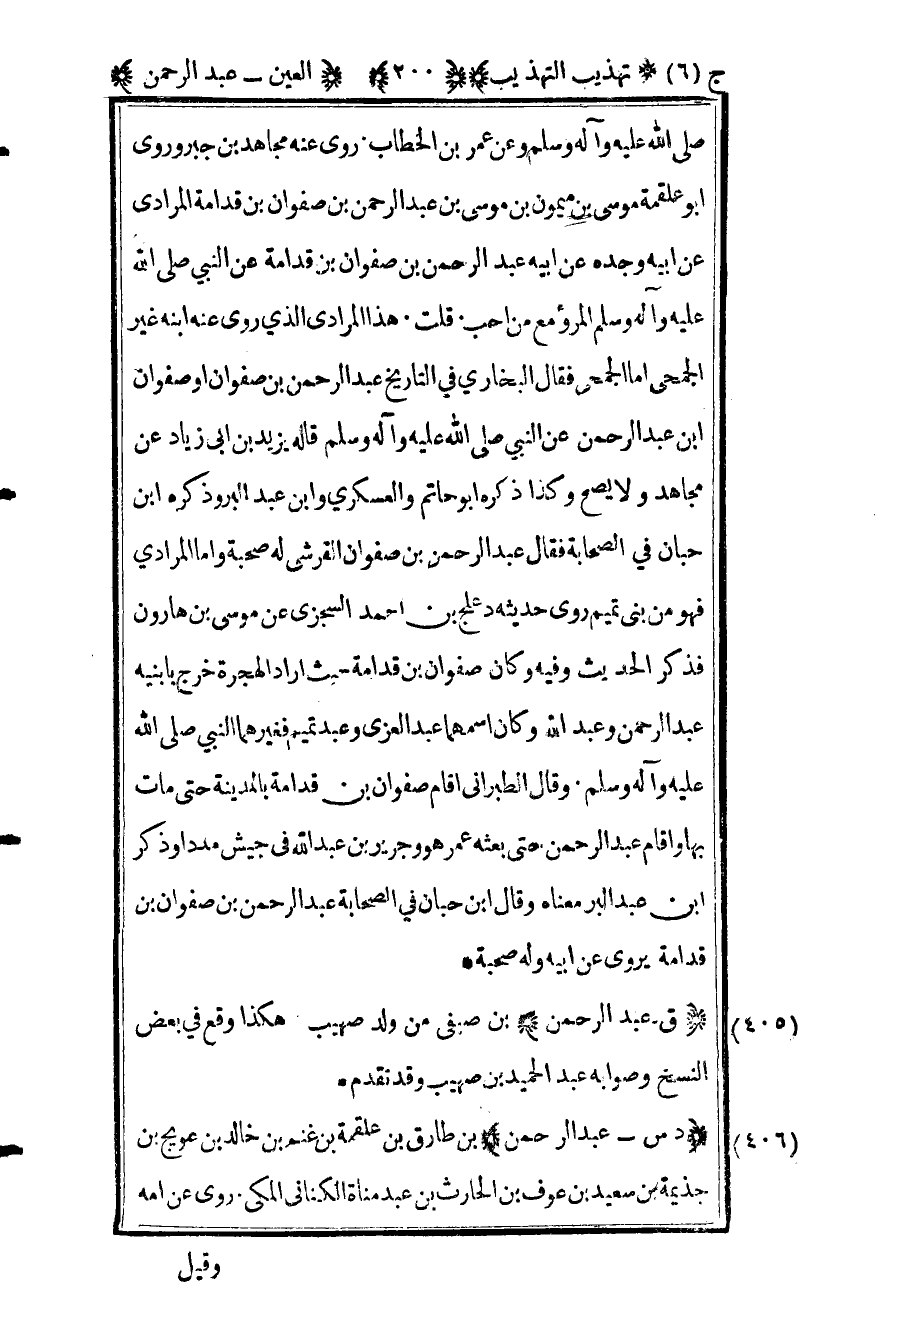 ج (٦) * تهذيب التهذيب ﴿٢٠٠﴾ ﴿ العين ــ عبد الرحمن ﴾
صلى الله عليه وآله وسلم وعن عمر بن الخطاب . روى عنه مجاهد بن جبر وروى
ابو علقمة موسى بن ميمون بن موسى بن عبد الرحمن بن صفوان بن قدامة المرادى
عن ابيه وجده عن ابيه عبد الرحمن بن صفوان بن قدامة عن النبي صلى الله
عليه وآله وسلم المرؤ مع من احب . قلت . هذا المرادى الذي روى عنه ابنه غير
الجمحى اما الجمحى فقال البخاري في التاريخ عبد الرحمن بن صفوان او صفوان
ابن عبد الرحمن عن النبي صلى الله عليه وآله وسلم قاله يزيد بن ابى زياد عن
مجاهد ولا يصح وكذا ذكره ابو حاتم والعسكري وابن عبد البر وذكره ابن
حبان في الصحابة فقال عبد الرحمن بن صفوان القرشى له صحبة واما المرادي
فهو من بنى تميم روى حديثه دعلج بن احمد السجزى عن موسى بن هارون
فذكر الحديث وفيه وكان صفوان بن قدامة حيث اراد الهجرة خرج بابنيه
عبد الرحمن وعبد الله وكان اسمهما عبد العزى وعبد تميم فغيرهما النبي صلى الله
عليه وآله وسلم . وقال الطبرانى اقام صفوان بن قدامة بالمدينة حتى مات
بها واقام عبد الرحمن حتى بعثه عمر هو وجرير بن عبد الله فى جيش مددا وذكر
ابن عبد البر معناه وقال ابن حبان في الصحابة عبد الرحمن بن صفوان بن
قدامة يروى عن ابيه وله صحبة •
(٤٠٥) ﴿ ق ـ عبد الرحمن ﴾ بن صيفى من ولد صهيب هكذا وقع في بعض
النسخ وصوابه عبد الحميد بن صهيب وقد تقدم •
(٤٠٦) ﴿ د س ــ عبد الرحمن ﴾ بن طارق بن علقمة بن غنم بن خالد بن عويج بن
جذيمة بن سعيد بن عوف بن الحارث بن عبد مناة الكنانى المكى . روى عن امه
وقيل